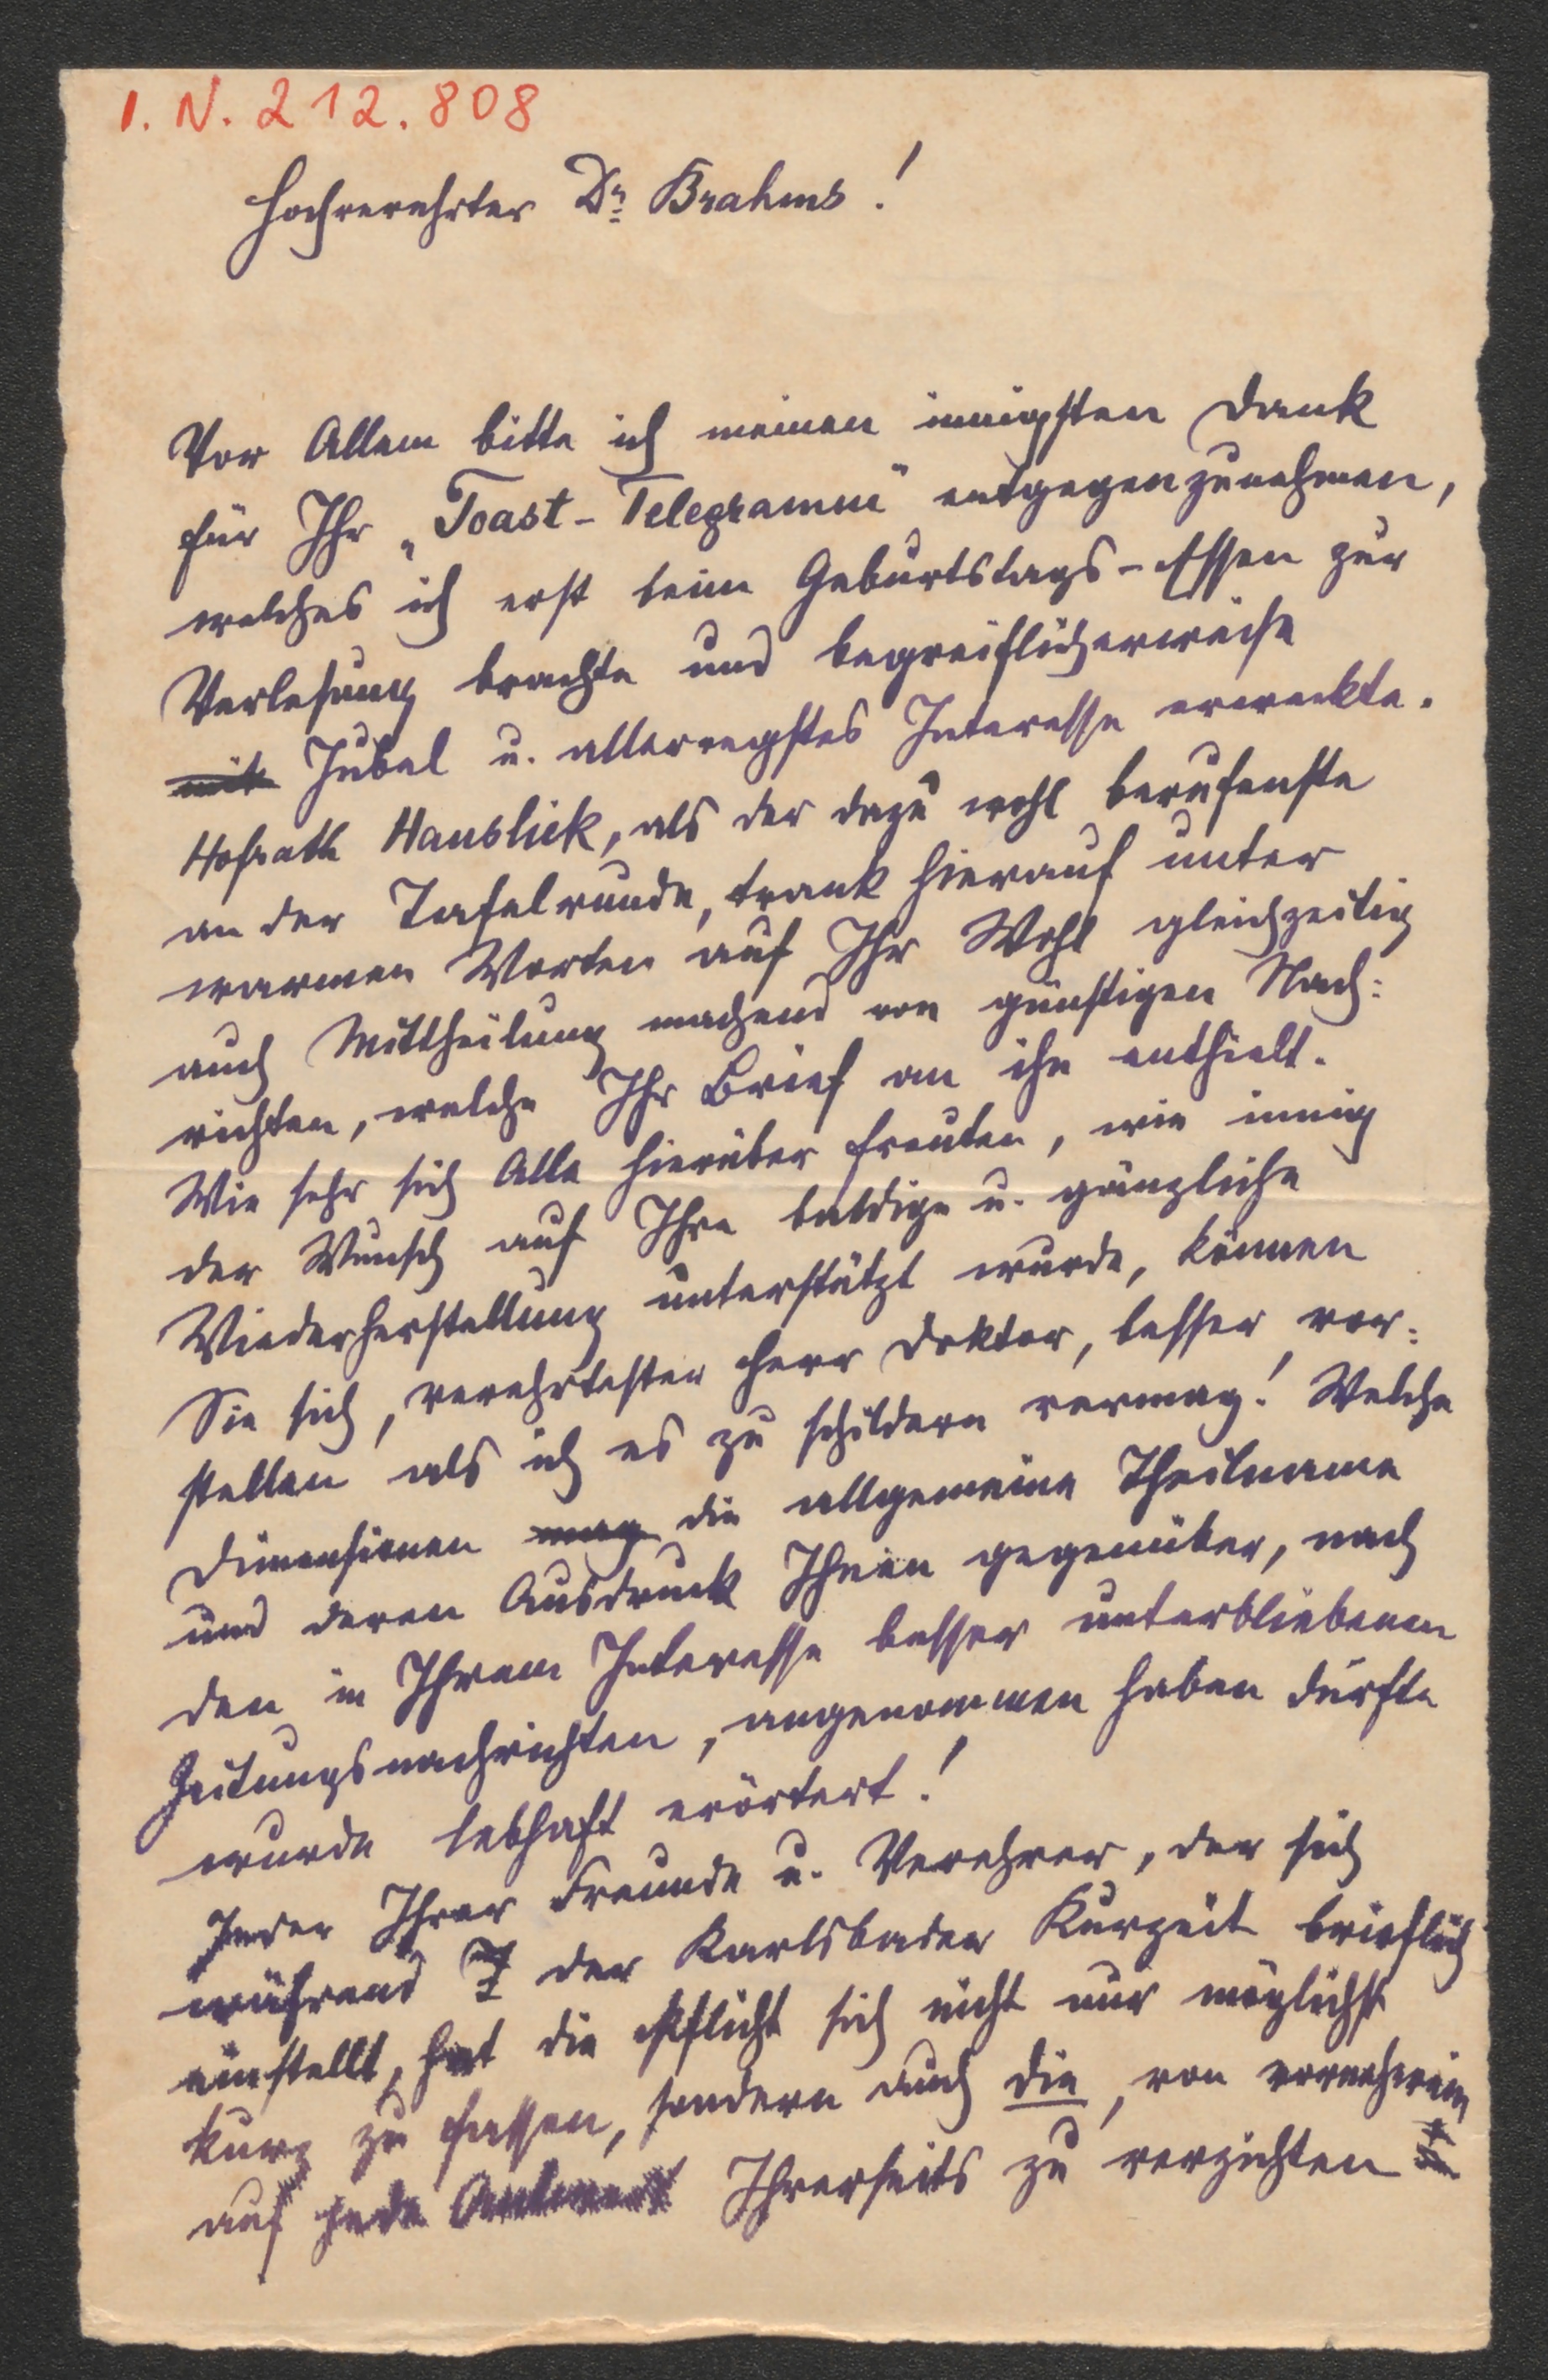 I. N. 212.808
Hochverehrter Dr. Brahms!
Vor Allem bitte ich meinen innigsten Dank
für Ihr „Toast-Telegramm" entgegenzunehmen,
welches ich erst beim Geburtstags-Essen zur
Verlesung brachte und begreiflicherweise
mit Jubel u. allerregstes Interesse erweckte.
Hofrath Hanslick, als der dazu wohl berufenste
an der Tafelrunde, trank hierauf unter
warmen Worten auf Ihr Wohl gleichzeitig
auch Mittheilung machend von günstigen Nach:
richten, welche Ihr Brief an ihn enthielt.
Wie sehr sich Alle hierüber freuten, wie innig
der Wunsch auf Ihre baldige u. gänzliche
Wiederherstellung unterstützt wurde, können
Sie sich, verehrtester Herr Doktor, besser vor:
stellen als ich es zu schildern vermag! Welche
Dimensionen mag die allgemeine Theilname
und deren Ausdruck Ihnen gegenüber, nach
den in Ihrem Interesse besser unterbliebenen
Zeitungsnachrichten, angenommen haben dürfte
wurde lebhaft erörtert!
Jeder Ihrer Freunde u. Verehrer, der sich
während der Karlsbader Kurzeit brieflich
einstellt, hat die Pflicht sich nicht nur möglichst
kurz zu fassen, sondern auch die, von vorneherein
auf jede Antwort Ihrerseits zu verzichten